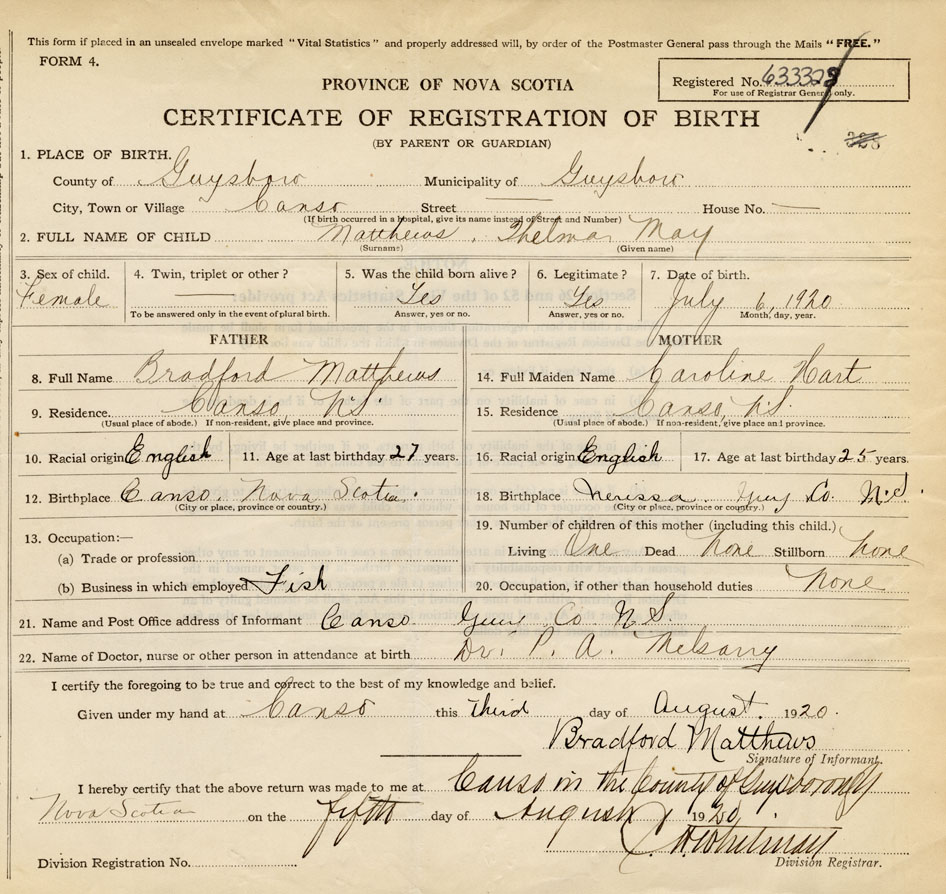 This form if placed in an unsealed envelope marked "Vital Statistics" and properly addressed will, by order of the Postmaster General pass through the Mails "FREE."
FORM 4.
Registered No. 633328
For use of Registrar General only.
PROVINCE OF NOVA SCOTIA
CERTIFICATE OF REGISTRATION OF BIRTH
(BY PARENT OR GUARDIAN)
328
1. PLACE OF BIRTH.
County of Guysboro Municipality of Guysboro
City, Town or Village Canso Street House No.
(If birth occurred in a hospital, give its name instead of Street and Number)
2. FULL NAME OF CHILD Matthews, Thelma May
(Surname) (Given name)
3. Sex of child. 4. Twin, triplet or other? 5. Was the child born alive? 6. Legitimate? 7. Date of birth.
Female Yes Yes July 6, 1920
To be answered only in the event of plural birth. Answer, yes or no. Answer, yes or no. Month, day, year.
FATHER
8. Full Name Bradford Matthews
9. Residence. Canso, N.S.
(Usual place of abode.) If non-resident, give place and province.
10. Racial origin English 11. Age at last birthday 27 years.
12. Birthplace Canso. Nova Scotia.
(City or place, province or country.)
13. Occupation:—
(a) Trade or profession
(b) Business in which employed Fish
MOTHER
14. Full Maiden Name Caroline Hart
15. Residence Canso, N.S.
(Usual place of abode.) If non-resident, give place and province.
16. Racial origin English 17. Age at last birthday 25 years.
18. Birthplace Nerissa. Guy Co. N.S.
(City or place, province or country.)
19. Number of children of this mother (including this child.)
Living One Dead None Stillborn None
20. Occupation, if other than household duties None
21. Name and Post Office address of Informant Canso. Guy Co. N.S.
22. Name of Doctor, nurse or other person in attendance at birth Dr. P. A.
I certify the foregoing to be true and correct to the best of my knowledge and belief.
Given under my hand at Canso this third day of August. 1920.
Bradford Matthews
Signature of Informant.
I hereby certify that the above return was made to me at Canso in the County of Guysborough
Nova Scotia on the fifth day of August 1920
Division Registration No. Division Registrar.